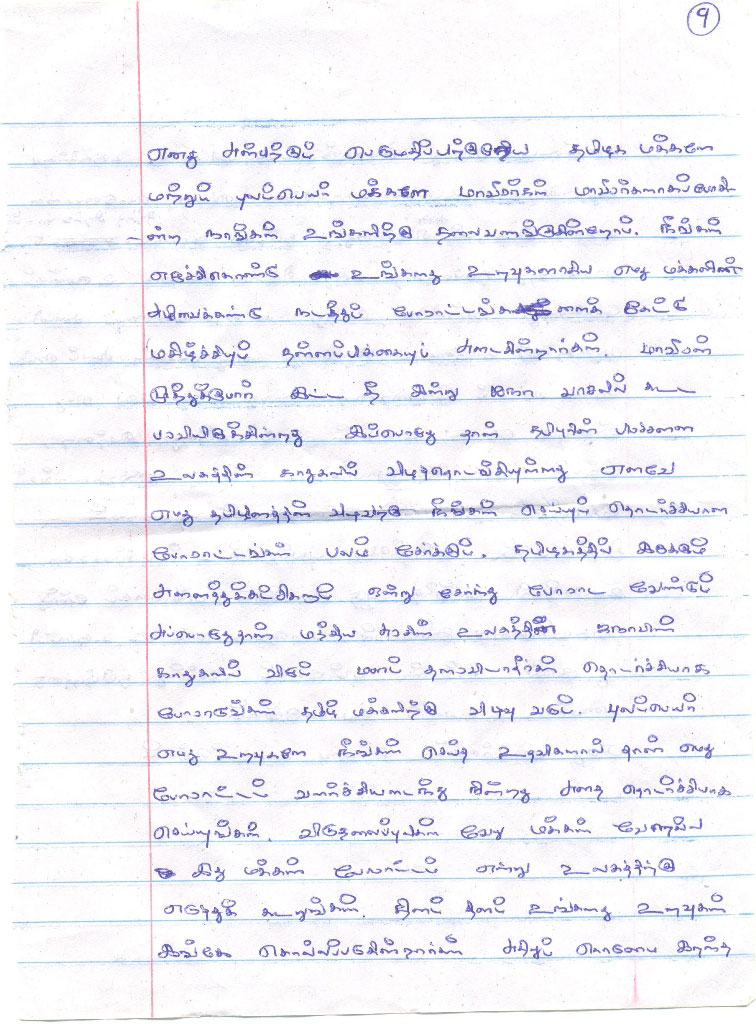 9
எனது அன்பிற்கும் பெருமதிப்பிற்குரிய தமிழக மக்களே
மற்றும் புலம்பெயர் மக்களே மாவீரர்கள் மாவீரர்களாகப்போகி
-ன்ற நாங்கள் உங்களிற்கு தலைவணங்குகின்றோம். நீங்கள்
எழுச்சிகொண்டு உங்களது உறவுகளாகிய எமது மக்களின்
அழிவைக்கண்டு நடத்தும் போராட்டங்களைக் கேட்டு
மகிழ்ச்சியும் தன்னம்பிக்கையும் அடைகின்றார்கள். மாவீரன்
முத்துக்குமார் இட்ட தீ இன்று ஐநா வாசலில் கூட
பரவியிருக்கின்றது இப்பொழுது தான் தமிழரின் பிரச்சனை
உலகத்தின் காதுகளில் விழத்தொடங்கியுள்ளது எனவே
எமது தமிழினத்தின் விடிவிற்கு நீங்கள் செய்யும் தொடர்ச்சியான
போராட்டங்கள் பலம் சேர்க்கும். தமிழகத்தில் இருக்கும்
அனைத்துக்கட்சிகளும் ஒன்று சேர்ந்து போராட வேண்டும்
அப்பொழுதுதான் மத்திய அரசின் உலகத்தின் ஐநாவின்
காதுகளில் விழும் மனம் தளரவிடாதீர்கள் தொடர்ச்சியாக
போராடுங்கள் தமிழ் மக்களிற்கு விடிவு வரும். புலம்பெயர்
எமது உறவுகளே நீங்கள் செய்த உதவிகளால் தான் எமது
போராட்டம் வளர்ச்சியடைந்து நின்றது அதை தொடர்ச்சியாக
செய்யுங்கள். விடுதலைப்புலிகள் வேறு மக்கள் வேறல்ல
இது மக்கள் போராட்டம் என்று உலகத்திற்கு
எடுத்துக் கூறுங்கள். தினம் தினம் உங்களது உறவுகள்
இங்கே கொல்லப்படுகின்றார்கள் அதிலும் கொடிய இரசாய